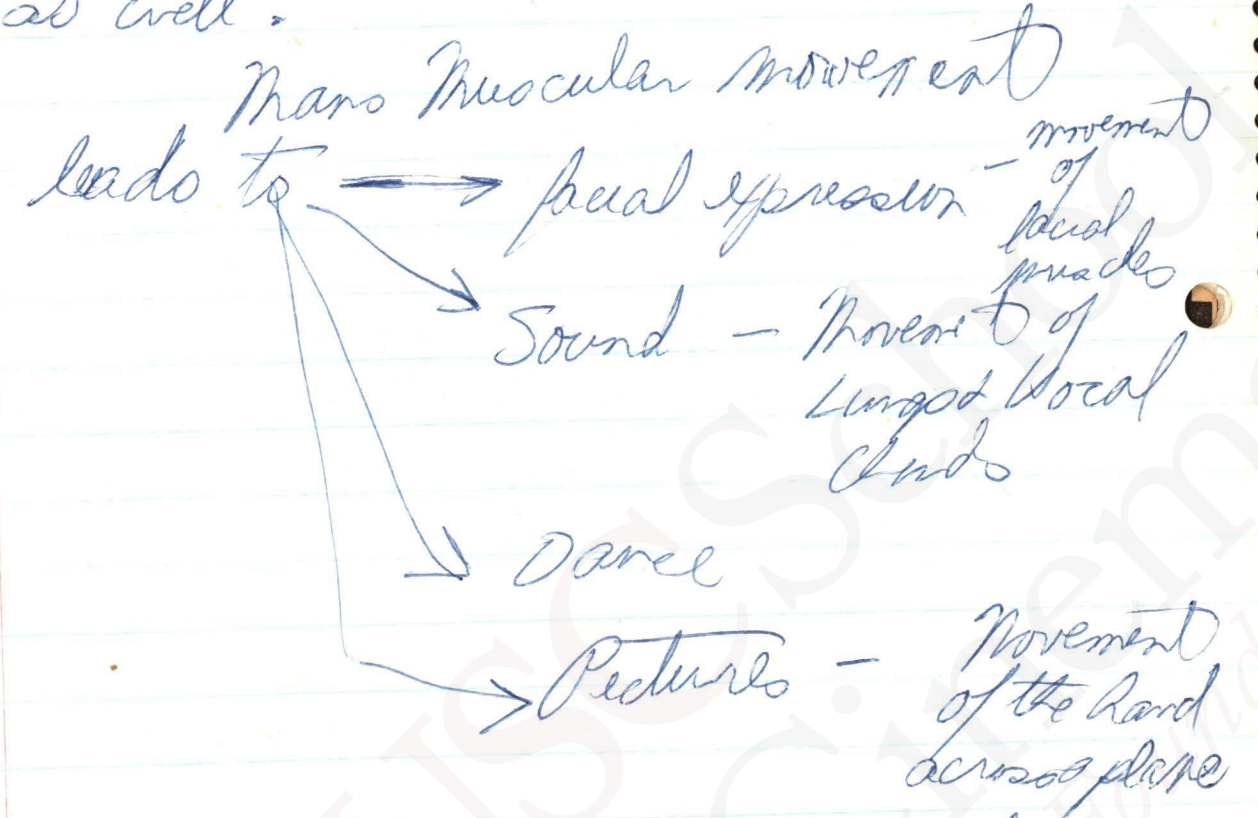 as well.
Mans Muscular movement
leads to → facial expression - movement
of
facial
muscles
Sound - Movement of
Lungs & Vocal
Chords
Dance
Pictures - Movement
of the hand
across a plane
USC School
Cinema